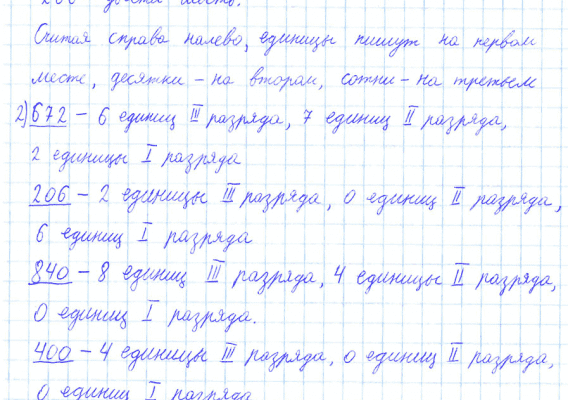 Считая справа налево, единицы пишут на первом
месте, десятки – на втором, сотни – на третьем
2) 672 – 6 единиц III разряда, 7 единиц II разряда,
2 единицы I разряда
206 – 2 единицы III разряда, 0 единиц II разряда,
6 единиц I разряда
840 – 8 единиц III разряда, 4 единицы II разряда,
0 единиц I разряда.
400 – 4 единицы III разряда, 0 единиц II разряда,
0 единиц I разряда